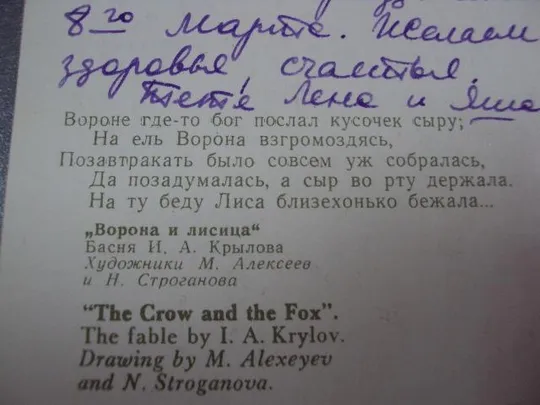 8го Марта. Желаем
здоровья, счастья.
Тетя Лена и Яша
Вороне где-то бог послал кусочек сыру;
На ель Ворона взгромоздясь,
Позавтракать было совсем уж собралась,
Да позадумалась, а сыр во рту держала.
На ту беду Лиса близехонько бежала...
„Ворона и лисица“
Басня И. А. Крылова
Художники М. Алексеев
и Н. Строганова
“The Crow and the Fox”.
The fable by I. A. Krylov.
Drawing by M. Alexeyev
and N. Stroganova.